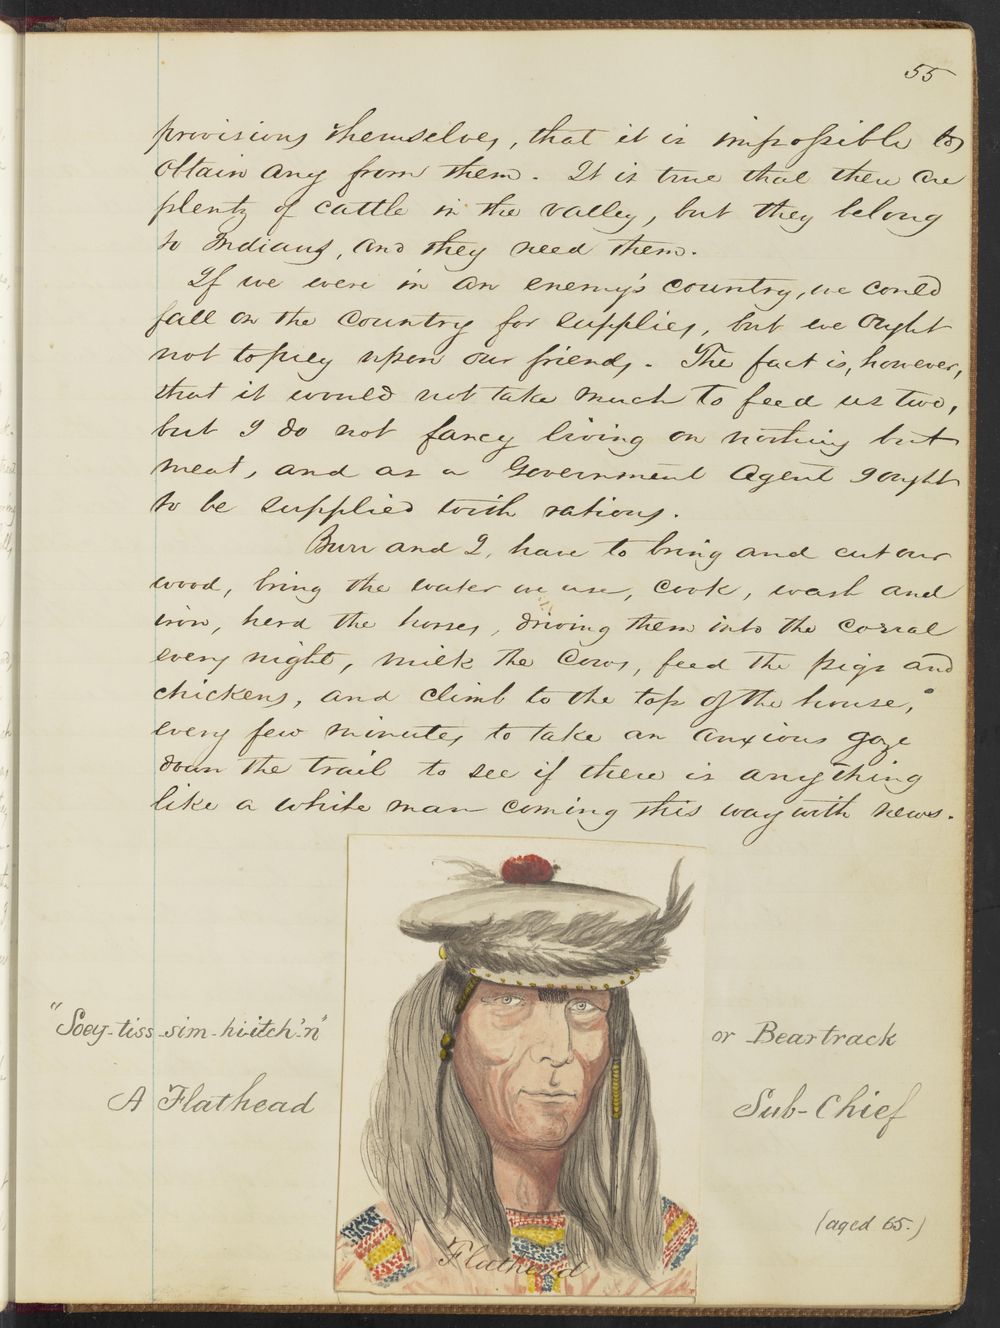 55
provisions themselves, that it is impossible to
obtain any from them. It is true that there are
plenty of cattle in the valley, but they belong
to Indians, and they need them.
If we were in an enemy's country, we could
fall on the country for supplies, but we ought
not to prey upon our friends. The fact is, however,
that it would not take much to feed us two,
but I do not fancy living on nothing but
meat, and as a Government Agent I ought
to be supplied with rations.
Burr and I, have to bring and cut our
wood, bring the water we use, cook, wash and
iron, herd the horses, driving them into the corral
every night, milk the cows, feed the pigs and
chickens, and climb to the top of the house,
every few minutes to take an anxious gaze
down the trail to see if there is anything
like a white man coming this way with news.
"Soey-tiss-sim-hi-itch'-n" or Beartrack
A Flathead Sub-Chief
(aged 65.)
Flathead